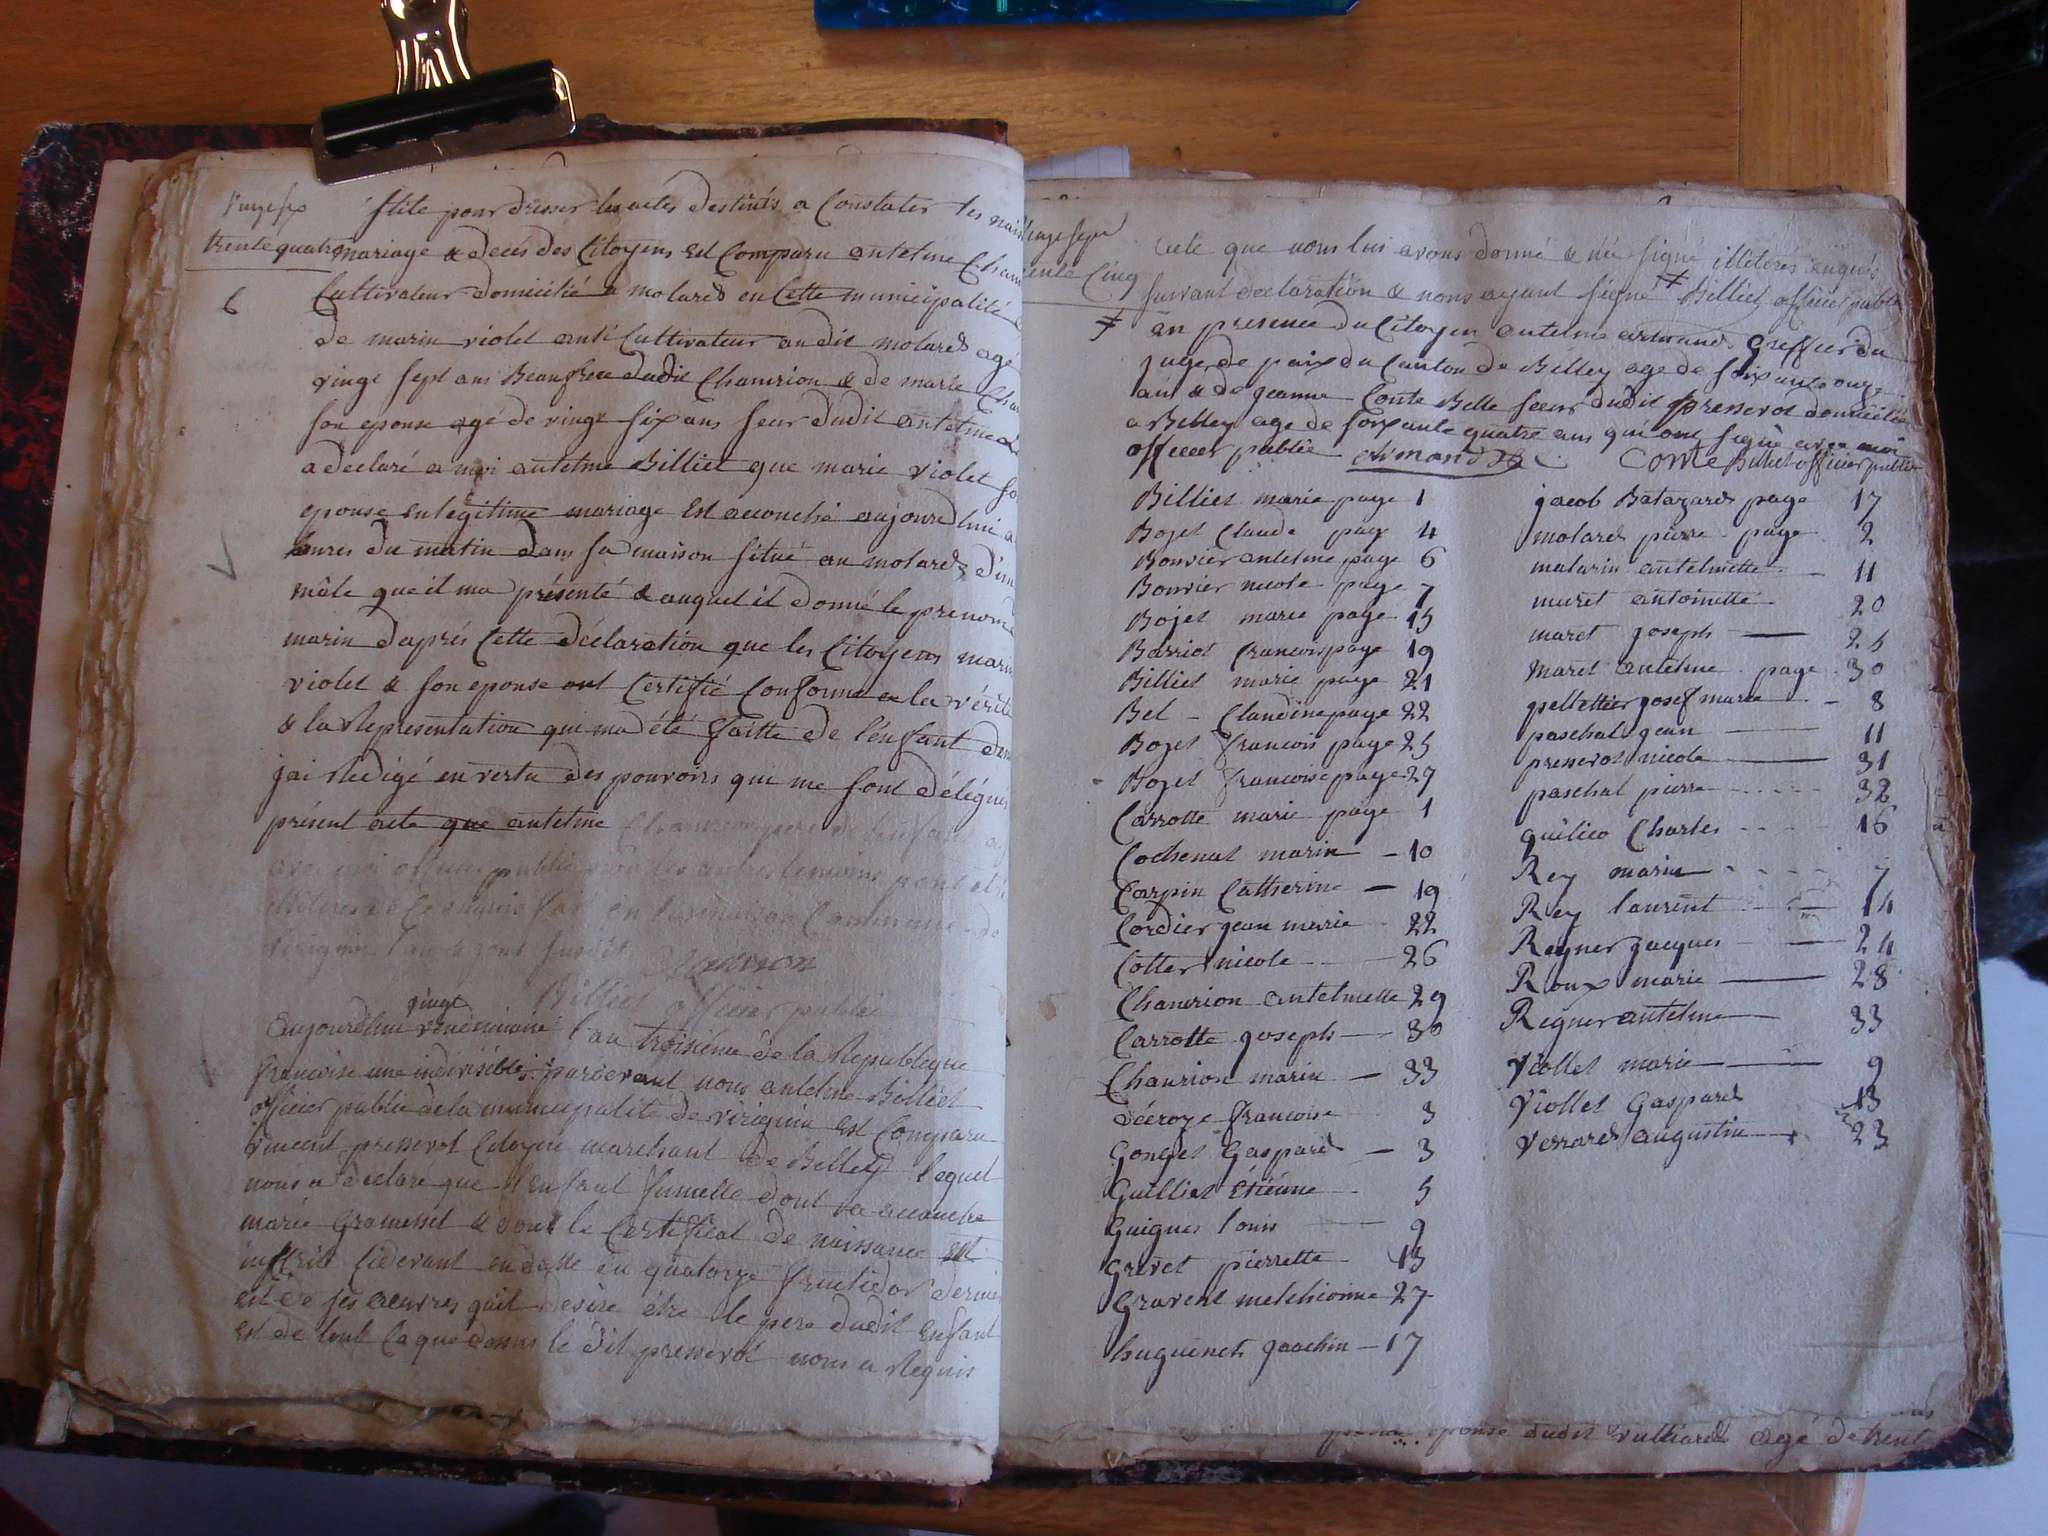 vingt six
trente quatre
6
stile pour dresser les actes destinés a Constater les nais
mariage & decés des Citoyens est Comparu antelme Cham
Cultivateur domicilié a molard en Cette municipalité
de marin violet aussi Cultivateur audit molard agé
vingt sept ans Beaufrere dudit Chamrion & de marie Cha
son epouse agé de vingt six ans seur dudit antelme
a declaré a moi antelme Billiet que marie violet so
epouse en legitime mariage est accouché aujourdhui a
heures du matin dans sa maison situé au molard d'un
mâle que il ma présenté & auquel il donné le prenom
marin daprés Cette déclaration que les Citoyens marin
violet & son epouse ont Certifié Conforme a la vérité
& la Representation qui ma été faitte de l'enfant dans
jai Redigé en vertu des pouvoirs qui me sont délégués
présent acte que antelme Chamrion pere de l'enfant a
avec moi officier public non les autres temoins pour etre
illiteres de ce enquis fait en la maison Commune de
virignin l'an & jour susdit
Chamrion
Billiet officier public
vingt
Aujourdhui vendemiaire l'an troisieme de la Republique
francoise une indivisible pardevant nous antelme Billiet
officier public de la municipalité de virignin est Comparu
vincent presserot Citoyen marchant de Belley lequel
nous a declaré que l'enfant fumelle dont a accouche
marie & dont le Certificat de naissance est
inscrit cidevant en datte du quatorze fructidor dernier
est de ses oeuvres quil desire être le pere dudit enfant
est de tout ce que dessus le dit presserot nous a Requis
vingt sept
trente Cinq
acte que nous lui avons donné & n'a signé illiteré enquis
suivant declaration & nous ayant signé ≠ Billiet officier public
≠ en presence du Citoyen antelme armand Greffier du
juge de paix du Canton de Belley age de soixante onze
ans & de jeanne Conte Belle soeur dudit presserot domicilié
a Belley age de soixante quatre ans qui ont signé avec moi
officier public armand Conte Billiet officier public
Billiet marie page 1
Bojet Claude page 4
Bonvier antelme page 6
Bonvier nicole page 7
Bojet marie page 15
Barriot francois page 19
Billiet marie page 21
Bel - Claudine page 22
Bojet francois page 25
Bojet francoise page 27
Carrotte marie page 1
Cochenat marin - 10
Carpin Catherine - 19
Cordier jean marie 22
Cotter nicole 26
Chamrion antelmette 29
Carrotte joseph - 30
Chamrion marin - 33
décroze francoise 3
Gonget Gaspard - 3
Guilliet étiénne - 5
Guigues louis 9
Grivet pierrette - 13
Gravent melchionne 27
huguenet joachin - 17
jacob Batazard page 17
molard pierre page 2
malarin antelmette - 11
muret antoinette 20
maret joseph - 25
maret antelme page 30
pellettier josef marie - 8
paschal jean 11
presserot nicole 31
paschal pierre 32
quilico Charles 16
Rey marin 7
Rey laurent 14
Regner jacques - 24
Roux marie - 28
Regner antelme 33
Viollet marie - 9
Viollet Gaspard 13
Verrard augustin - 23
epouse dudit vulliard agé de trent